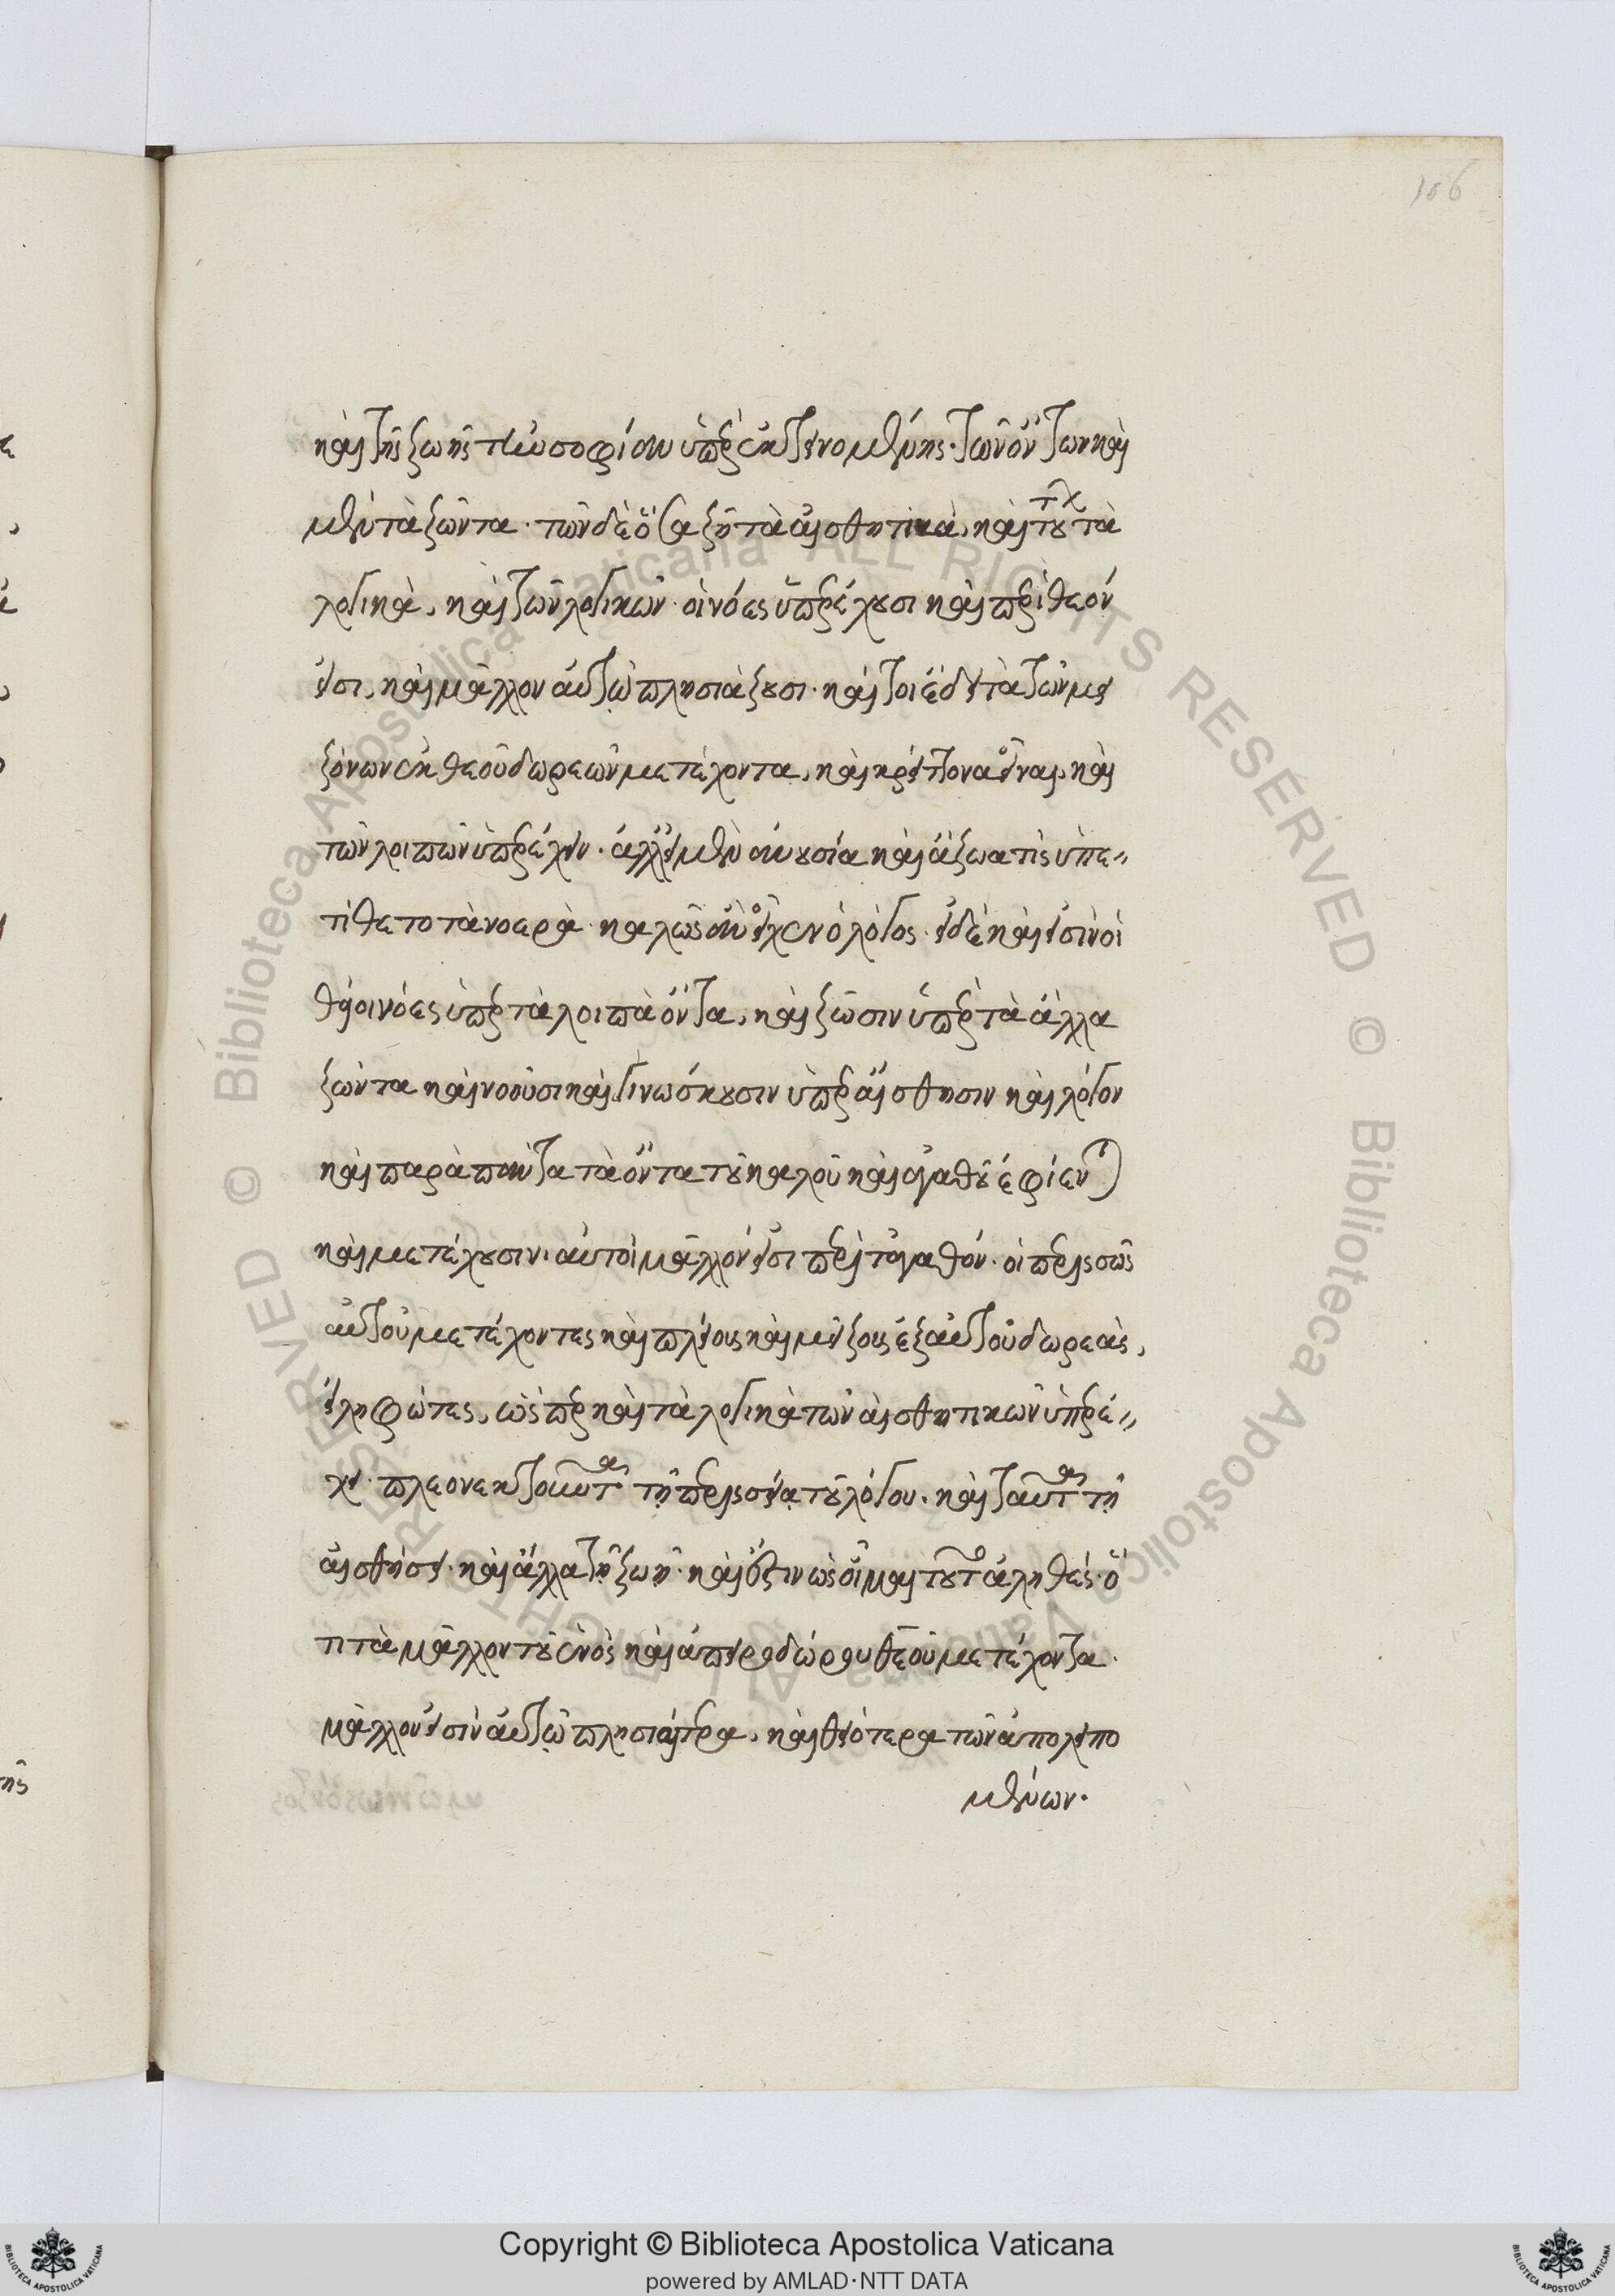 186
καὶ τῆς ζωῆς τὴν σοφίαν ὑπερεκτεινομένης. τῶν ὄντων καὶ
μὲν τὰ ζῶντα. τῶν δὲ ὅσα ζῇ τὰ αἰσθητικὰ, καὶ τούτων τὰ
λογικὰ, καὶ τῶν λογικῶν οἱ νόες ὑπερέχουσι καὶ περὶ θεόν
εἰσι, καὶ μᾶλλον αὐτῷ πλησιάζουσι. καί τοι ἔδει τὰ τῶν μει
ζόνων ἐκ θεοῦ δωρεῶν μετέχοντα, καὶ κρείττονα εἶναι, καὶ
τῶν λοιπῶν ὑπερέχειν. ἀλλ' εἰ μὲν ἀνούσια καὶ ἄζωά τις ὑπε〃
τίθετο τὰ νοερὰ καλῶς ἂν εἶχεν ὁ λόγος. εἰ δὲ καὶ εἰσὶν οἱ
θεῖοι νόες ὑπὲρ τὰ λοιπὰ ὄντα, καὶ ζῶσιν ὑπὲρ τὰ ἄλλα
ζῶντα καὶ νοοῦσι καὶ γινώσκουσιν ὑπὲρ αἴσθησιν καὶ λόγον
καὶ παρὰ πάντα τὰ ὄντα τοῦ καλοῦ καὶ ἀγαθοῦ ἐφίενται
καὶ μετέχουσιν. αὐτοὶ μᾶλλόν εἰσι περὶ τἀγαθόν. οἱ περισσῶς
αὐτοῦ μετέχοντες καὶ πλείους καὶ μείζους ἐξ αὐτοῦ δωρεὰς,
εἰληφότες, ὥσπερ καὶ τὰ λογικὰ τῶν αἰσθητικῶν ὑπερέ〃
χει πλεονεκτοῦντα τῇ περισσείᾳ τοῦ λόγου. καὶ ταῦτα τῇ
αἰσθήσει. καὶ ἄλλα τῇ ζωῇ. καὶ ἔστιν ὡς οἶμαι τοῦτο ἀληθές. ὅ
τι τὰ μᾶλλον τοῦ ἑνὸς καὶ ἀπειροδώρου θεοῦ μετέχοντα.
μᾶλλον εἰσὶν αὐτῷ πλησιαίτερα, καὶ θειότερα τῶν ἀπολειπο
μένων.
Copyright © Biblioteca Apostolica Vaticana
powered by AMLAD·NTT DATA